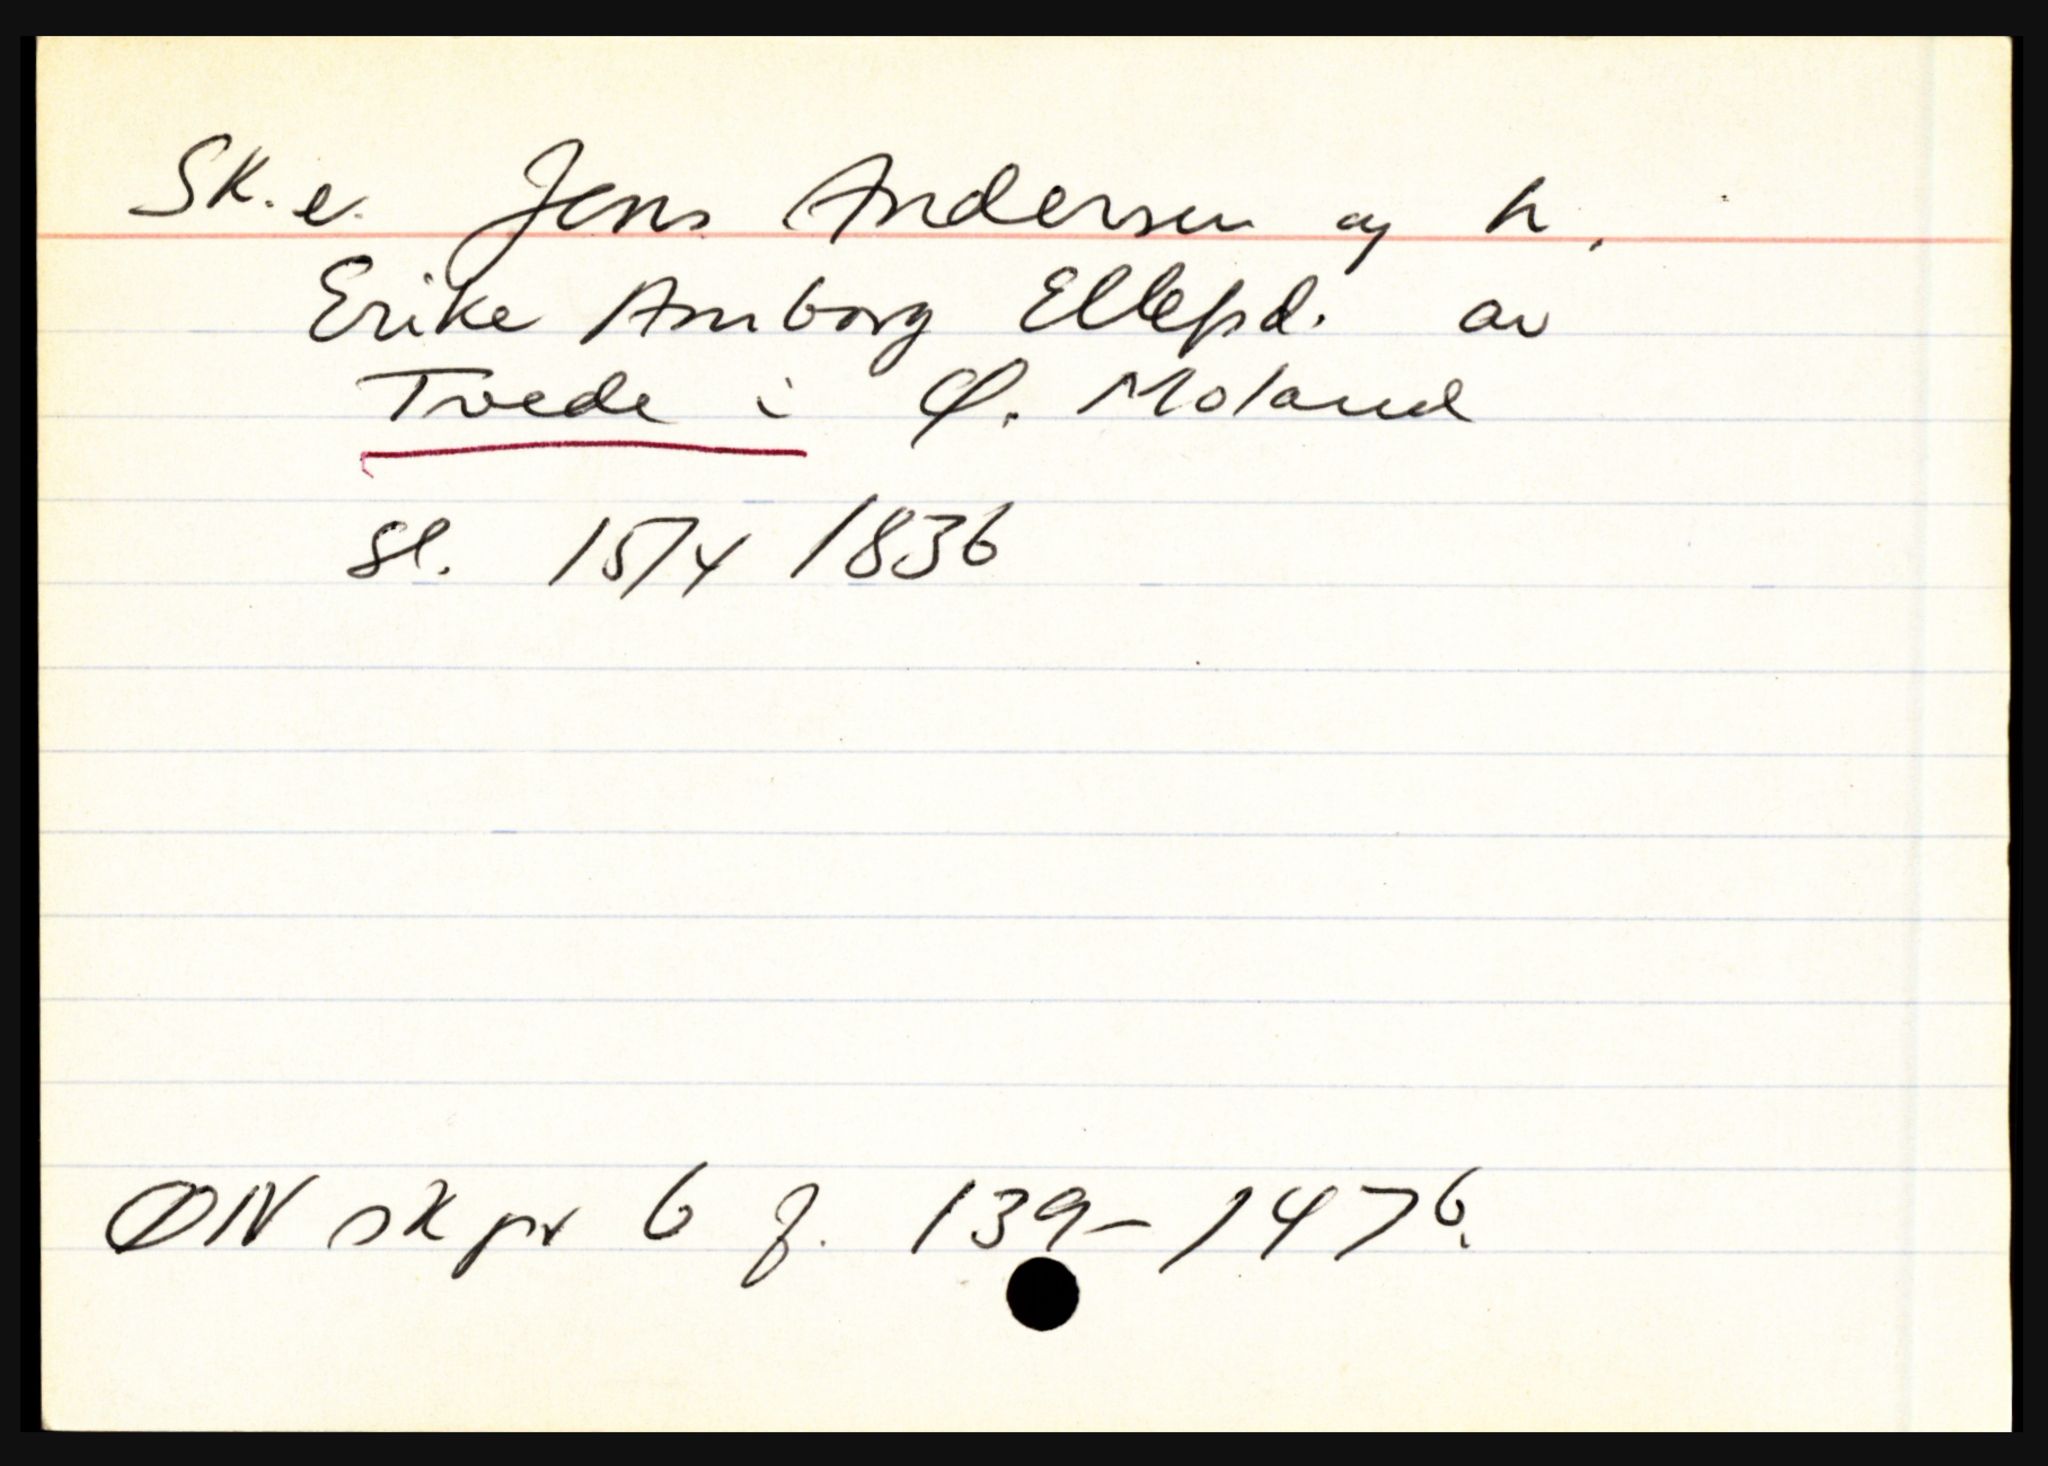 Sk. e. Jens Andersen og h.
Erike Amborg Ellefsd. av
Tvede i Ø. Moland
sl. 15/4 1836
ØDN sk pr 6 f. 139-147b.